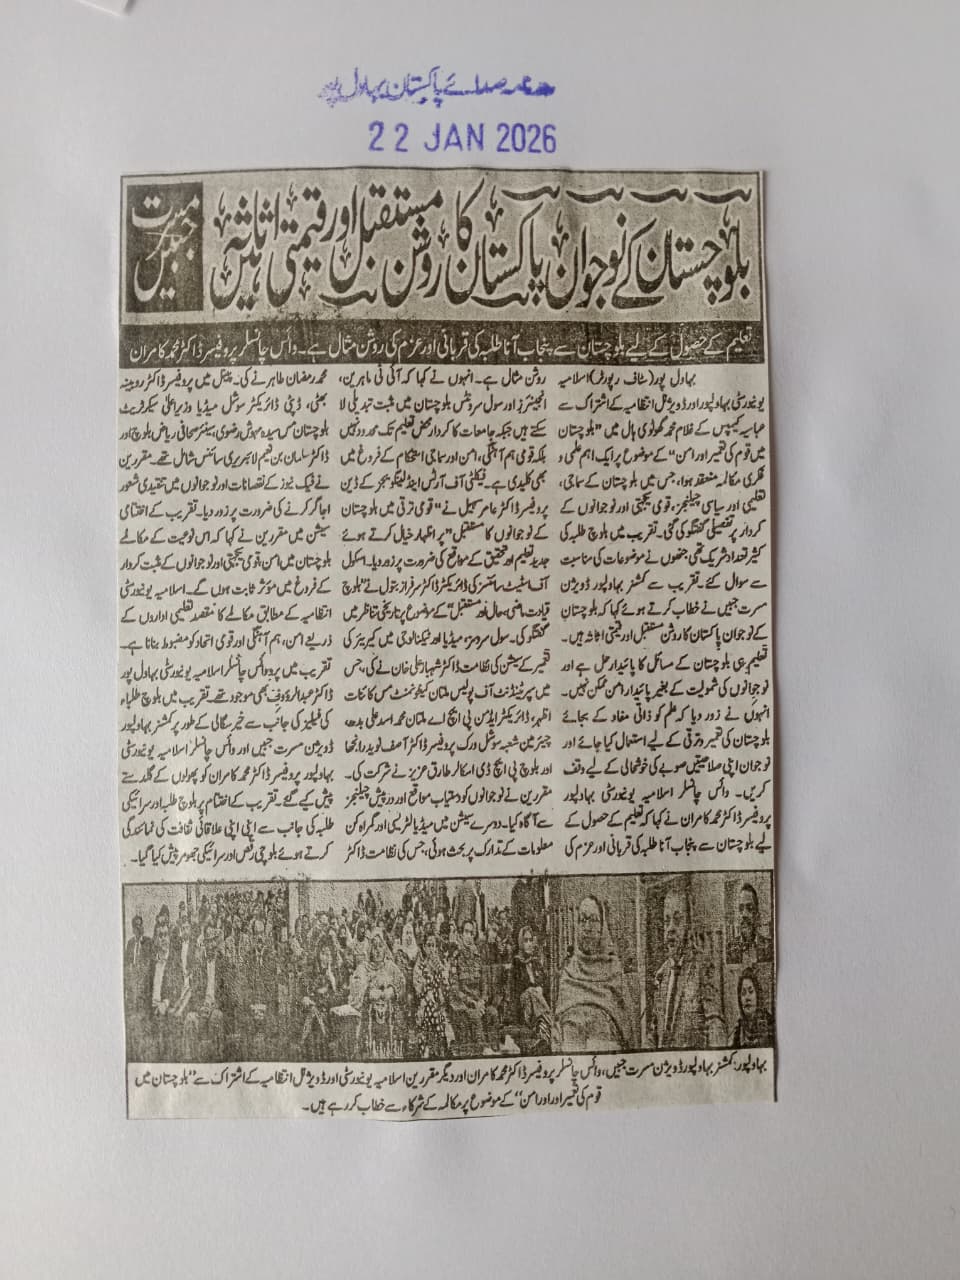 صدائے پاکستان بہاولپور
22 JAN 2026
بلوچستان کے نوجوان پاکستان کا روشن مستقبل اور قیمتی اثاثہ ہیں
مسرت جبیں
تعلیم کے حصول کے لیے بلوچستان سے پنجاب آنا طلبہ کی قربانی اور عزم کی روشن مثال ہے۔ وائس چانسلر پروفیسر ڈاکٹر محمد کامران
بہاول پور (سٹاف رپورٹر) اسلامیہ
یونیورسٹی بہاولپور اور ڈویژنل انتظامیہ کے اشتراک سے
عباسیہ کیمپس کے غلام محمد گھوٹوی ہال میں ”بلوچستان
میں قوم کی تعمیر اور امن“ کے موضوع پر ایک اہم علمی و
فکری مکالمہ منعقد ہوا، جس میں بلوچستان کے سماجی،
تعلیمی اور سیاسی چیلنجز، قومی یکجہتی اور نوجوانوں کے
کردار پر تفصیلی گفتگو کی گئی۔ تقریب میں بلوچ طلبہ کی
کثیر تعداد شریک تھی جنھوں نے موضوعات کی مناسبت
سے سوال کئے۔ تقریب سے کمشنر بہاولپور ڈویژن
مسرت جبیں نے خطاب کرتے ہوئے کہا کہ بلوچستان
کے نوجوان پاکستان کا روشن مستقبل اور قیمتی اثاثہ ہیں۔
تعلیم ہی بلوچستان کے مسائل کا پائیدار حل ہے اور
نوجوانوں کی شمولیت کے بغیر پائیدار امن ممکن نہیں۔
انہوں نے زور دیا کہ علم کو ذاتی مفاد کے بجائے
بلوچستان کی تعمیر و ترقی کے لیے استعمال کیا جائے اور
نوجوان اپنی صلاحیتیں صوبے کی خوشحالی کے لیے وقف
کریں۔ وائس چانسلر اسلامیہ یونیورسٹی بہاولپور
پروفیسر ڈاکٹر محمد کامران نے کہا کہ تعلیم کے حصول کے
لیے بلوچستان سے پنجاب آنا طلبہ کی قربانی اور عزم کی
روشن مثال ہے۔ انہوں نے کہا کہ آئی ٹی ماہرین،
انجینئرز اور سول سرونٹس بلوچستان میں مثبت تبدیلی لا
سکتے ہیں جبکہ جامعات کا کردار محض تعلیم تک محدود نہیں
بلکہ قومی ہم آہنگی، امن اور سماجی استحکام کے فروغ میں
بھی کلیدی ہے۔ فیکلٹی آف آرٹس اینڈ لینگویجز کے ڈین
پروفیسر ڈاکٹر عامر سہیل نے ”قومی ترقی میں بلوچستان
کے نوجوانوں کا مستقبل“ پر اظہار خیال کرتے ہوئے
جدید تعلیم اور تحقیق کے مواقع کی ضرورت پر زور دیا۔ اسکول
آف سٹیٹ سائنسز کی ڈائریکٹر ڈاکٹر سرفراز بتول نے ”بلوچ
قیادت ماضی، حال اور مستقبل“ کے موضوع پر تاریخی تناظر میں
گفتگو کی۔ سول سروسز، میڈیا اور ٹیکنالوجی میں کیریئر کی
تعمیر کے سیشن کی نظامت ڈاکٹر شہباز علی خان نے کی، جس
میں سپرنٹنڈنٹ آف پولیس ملتان کینٹونمنٹ مس کائنات
اظہر، ڈائریکٹر ایڈمن پی ایچ اے ملتان محمد اسد علی بدھ،
چیئرمین شعبہ سوشل ورک پروفیسر ڈاکٹر آصف نوید رانجھا
اور بلوچ پی ایچ ڈی اسکالر طارق عزیز نے شرکت کی۔
مقررین نے نوجوانوں کو دستیاب مواقع اور درپیش چیلنجز
سے آگاہ کیا۔ دوسرے سیشن میں میڈیا لٹریسی اور گمراہ کن
معلومات کے تدارک پر بحث ہوئی، جس کی نظامت ڈاکٹر
محمد رمضان طاہر نے کی۔ پینل میں پروفیسر ڈاکٹر روبینہ
بھٹی، ڈپٹی ڈائریکٹر سوشل میڈیا وزیراعلیٰ سیکرٹریٹ
بلوچستان مس سیدہ مہوش رضوی، سینئر صحافی ریاض بلوچ اور
ڈاکٹر سلمان بن نعیم لائبریری سائنس شامل تھے۔ مقررین
نے فیک نیوز کے نقصانات اور نوجوانوں میں تنقیدی شعور
اجاگر کرنے کی ضرورت پر زور دیا۔ تقریب کے اختتامی
سیشن میں مقررین نے کہا کہ اس نوعیت کے مکالمے
بلوچستان میں امن، قومی یکجہتی اور نوجوانوں کے مثبت کردار
کے فروغ میں مؤثر ثابت ہوں گے۔ اسلامیہ یونیورسٹی
انتظامیہ کے مطابق مکالمے کا مقصد تعلیمی اداروں کے
ذریعے امن، ہم آہنگی اور قومی اتحاد کو مضبوط بنانا ہے۔
تقریب میں پرو وائس چانسلر اسلامیہ یونیورسٹی بہاول پور
ڈاکٹر عبدالرؤوف بھی موجود تھے۔ تقریب میں بلوچ طلباء
کی فیلیز کی جانب سے خیر سگالی کے طور پر کمشنر بہاولپور
ڈویژن مسرت جبیں اور وائس چانسلر اسلامیہ یونیورسٹی
بہاولپور پروفیسر ڈاکٹر محمد کامران کو پھولوں کے گلدستے
پیش کیے گئے۔ تقریب کے اختتام پر بلوچ طلبہ اور سرائیکی
طلبہ کی جانب سے اپنی اپنی علاقائی ثقافت کی نمائندگی
کرتے ہوئے بلوچی رقص اور سرائیکی جھومر پیش کیا گیا۔
بہاولپور: کمشنر بہاولپور ڈویژن مسرت جبیں، وائس چانسلر پروفیسر ڈاکٹر محمد کامران اور دیگر مقررین اسلامیہ یونیورسٹی اور ڈویژنل انتظامیہ کے اشتراک سے ”بلوچستان میں
قوم کی تعمیر اور اور امن“ کے موضوع پر مکالمہ کے شرکاء سے خطاب کر رہے ہیں۔